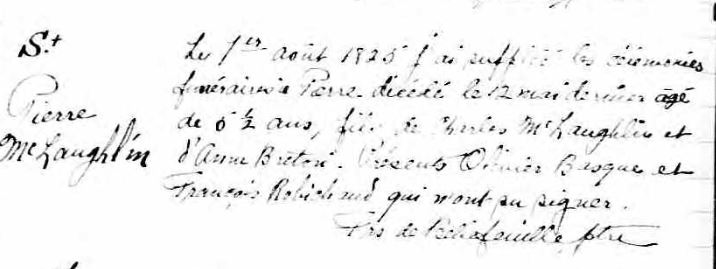 S.t
Pierre
McLaughlin
Le 1er août 1825 j'ai suppléé les cérémonies
funéraires à Pierre décédé le 12 mai dernier agé
de 5 1/2 ans, fils de Charles McLaughlin et
d'Anne Breton. Présents Olivier Basque et
François Robichaud qui n'ont pu signer.
Frs de Bellefeuille, ptre